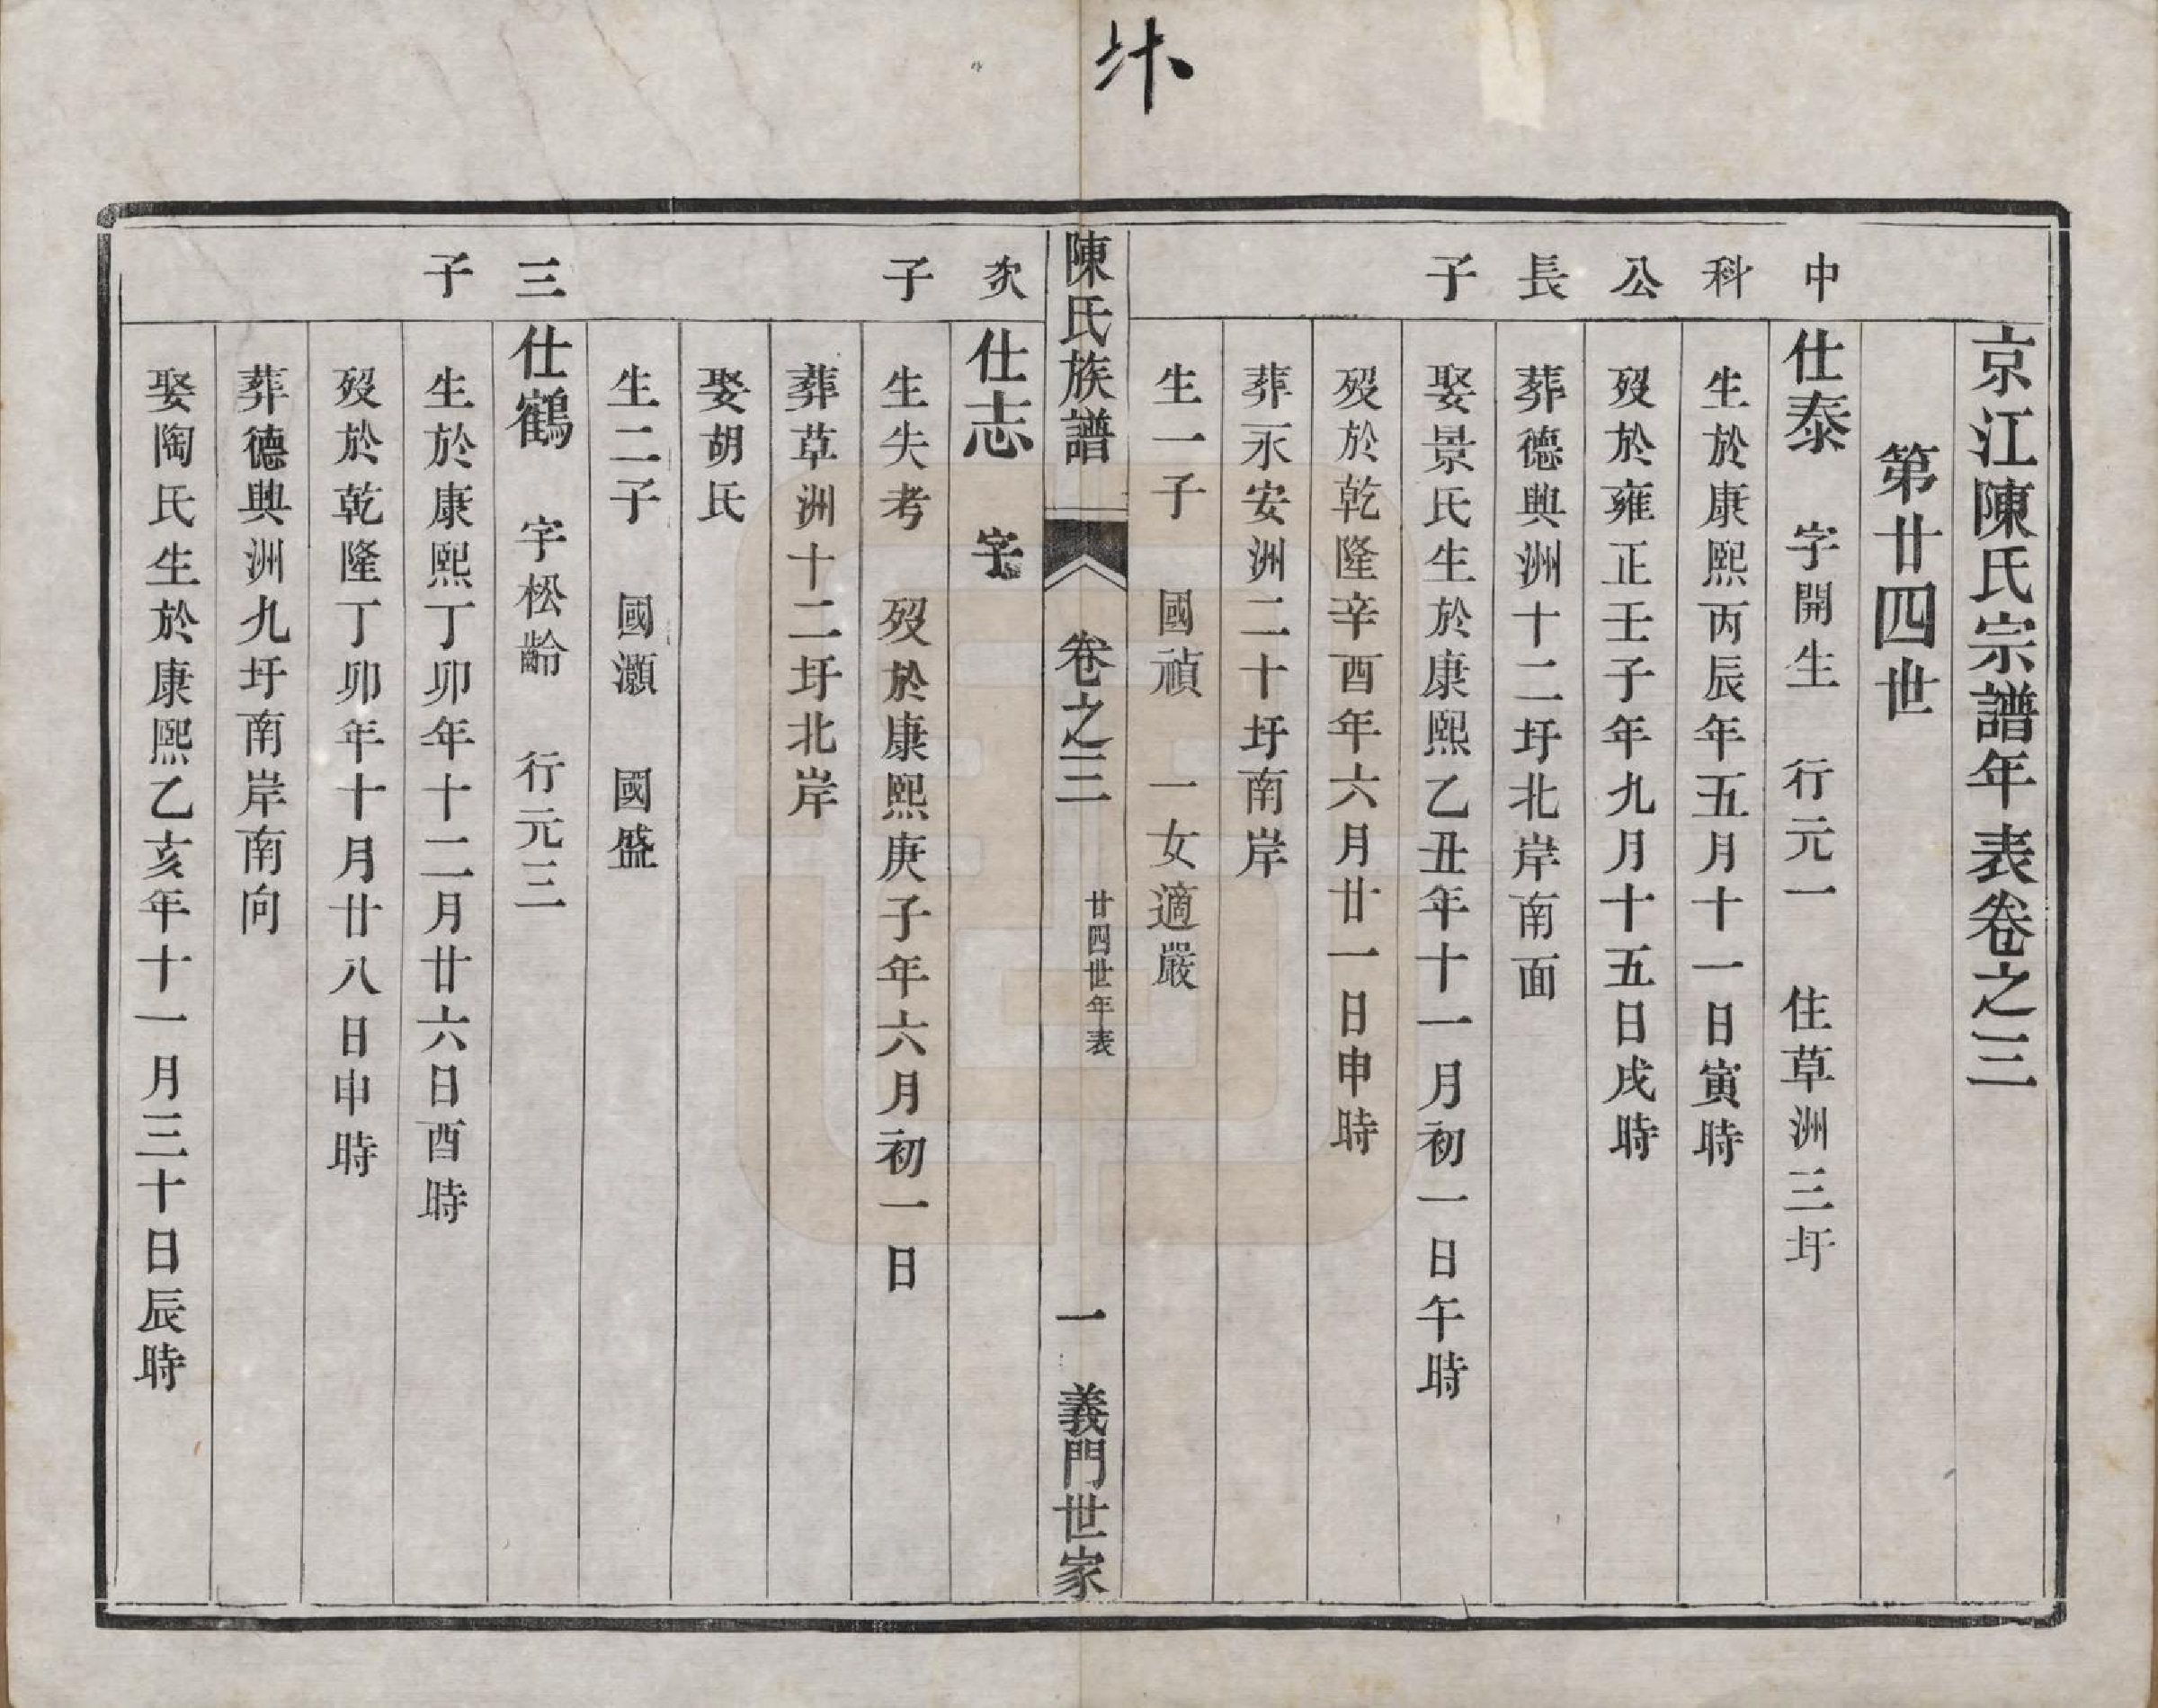 京江陳氏宗譜年表卷之三
第廿四世
中科公長子
仕泰 字開生 行元一 住草洲三圩
生於康熙丙辰年五月十一日寅時
歿於雍正壬子年九月十五日戌時
葬德興洲十二圩北岸南面
娶景氏生於康熙乙丑年十一月初一日午時
歿於乾隆辛酉年六月廿一日申時
葬永安洲二十圩南岸
生一子 國禎 一女適嚴
陳氏族譜 卷之三 廿四世年表 一 義門世家
次子
仕志 字
生失考 歿於康熙庚子年六月初一日
葬草洲十二圩北岸
娶胡氏
生二子 國灝 國盛
三子
仕鶴 字松齡 行元三
生於康熙丁卯年十二月廿六日酉時
歿於乾隆丁卯年十月廿八日申時
葬德興洲九圩南岸南向
娶陶氏生於康熙乙亥年十一月三十日辰時